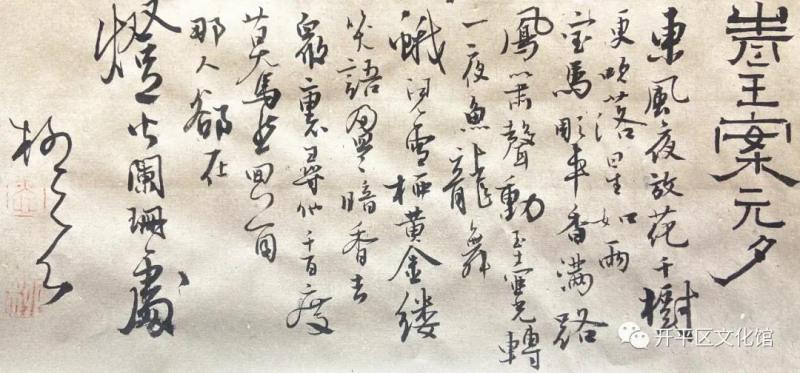 青玉案元夕
東風夜放花千樹
更吹落星如雨
宝馬彫車香滿路
鳳簫聲動玉壺光轉
一夜魚龍舞
蛾兒雪柳黄金缕
笑語盈盈暗香去
衆裏尋他千百度
驀然回首
那人卻在
燈火闌珊處
开平区文化馆